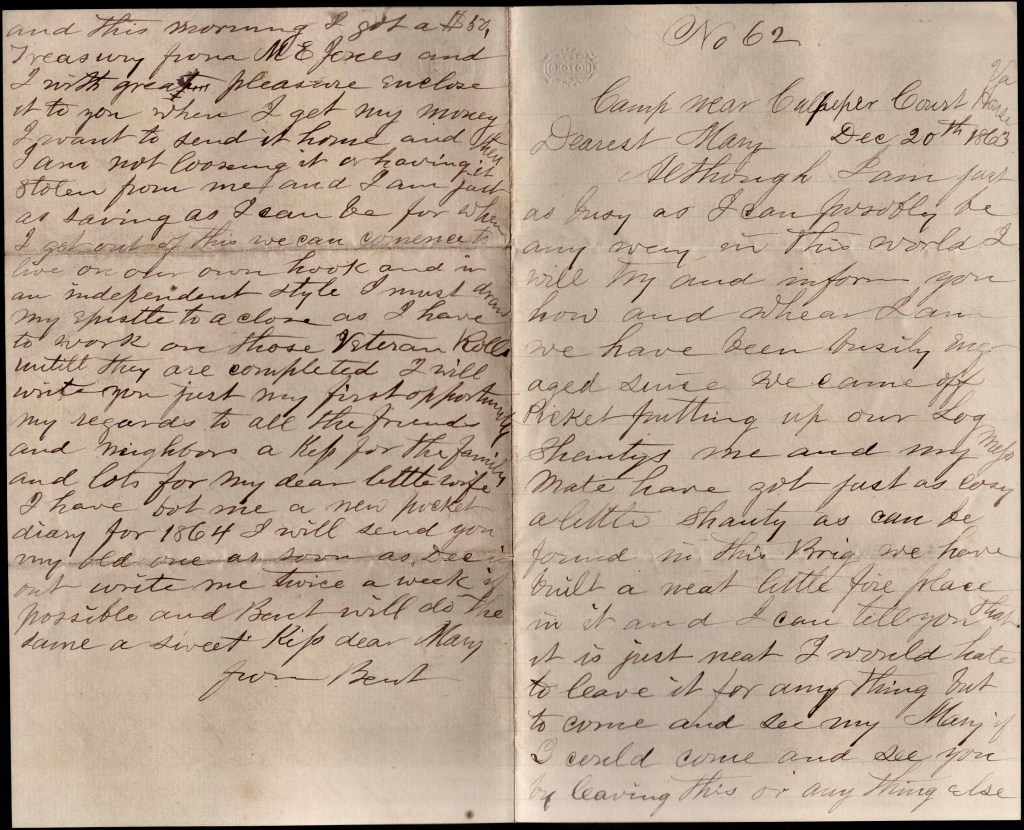 No 62
Camp near Culpeper Court House Va
Dearest Mary Dec 20th 1863
Although I am just
as busy as I can possbly be
any way in this world I
will try and inform you
how and whear I am
we have been busily eng-
aged since we came off
Picket putting up our Log
Shantys me and my Mess
Mate have got just as cosy
a little Shanty as can be
found in this Brig we have
built a neat little fire place
in it and I can tell you that
it is just neat I would hate
to leave it for any thing but
to come and see my Mary if
I could come and see you
by leaving this or any thing else
and this morning I got a
Treasury from M E and
I with great pleasure enclose
it to you when I get my money
I want to send it home and then
I am not loosing it or having it
stolen from me and I am just
as saving as I can be for when
I get out of this we can comence to
live on our own hook and in
an independent style I must draw
my Epistle to a close as I have
to work on those Veteran Rolls
untill they are completed I will
write you just my first opportunity
my regards to all the friends
and neighbors a Kiss for the family
and lots for my dear little wife
I have bot me a new pocket
diary for 1864 I will send you
my old one as soon as Dec is
out write me twice a week if
possible and Bent will do the
same a sweet Kiss dear Mary
from Bent